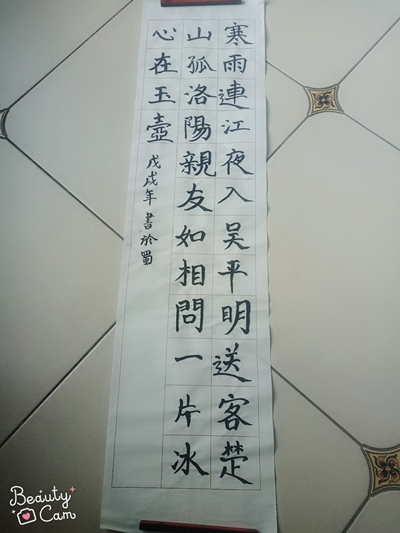 寒雨連江夜入吴平明送客楚
山孤洛陽親友如相問一片冰
心在玉壺
戊戌年書於蜀
Beauty
Cam